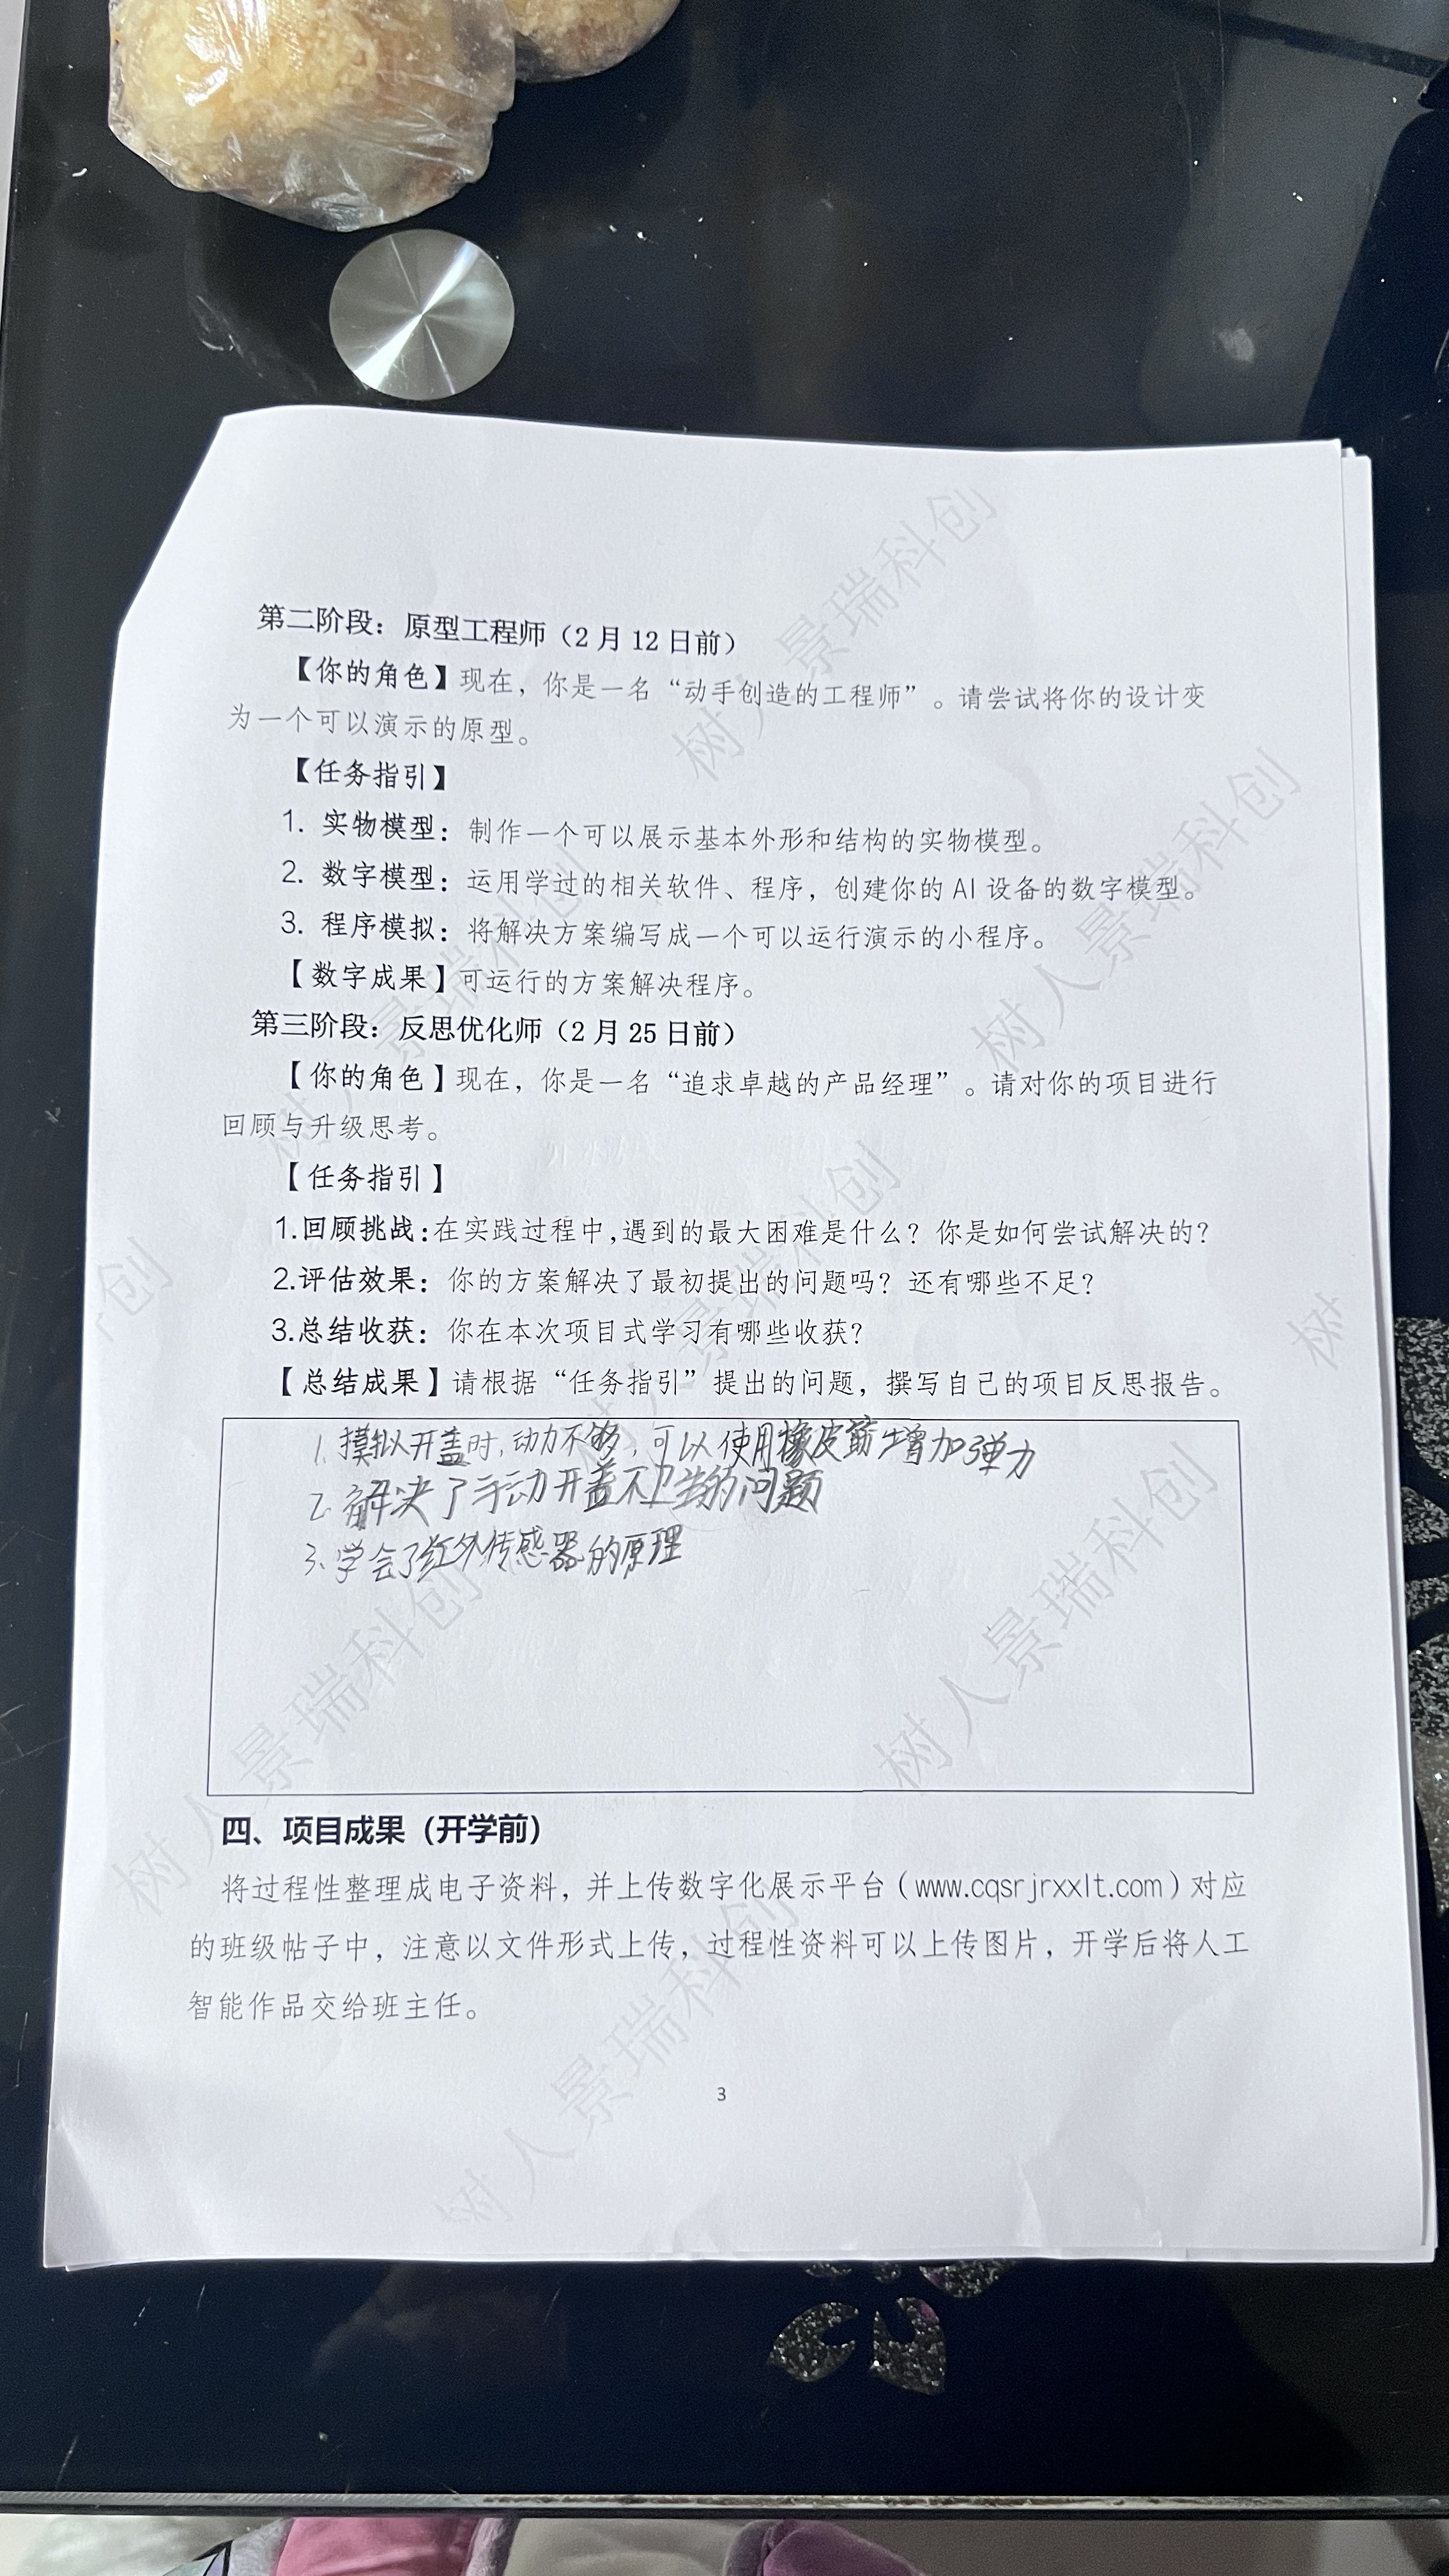 第二阶段：原型工程师（2 月 12 日前）
【你的角色】现在，你是一名“动手创造的工程师”。请尝试将你的设计变
为一个可以演示的原型。
【任务指引】
1. 实物模型：制作一个可以展示基本外形和结构的实物模型。
2. 数字模型：运用学过的相关软件、程序，创建你的 AI 设备的数字模型。
3. 程序模拟：将解决方案编写成一个可以运行演示的小程序。
【数字成果】可运行的方案解决程序。
第三阶段：反思优化师（2 月 25 日前）
【你的角色】现在，你是一名“追求卓越的产品经理”。请对你的项目进行
回顾与升级思考。
【任务指引】
1.回顾挑战：在实践过程中，遇到的最大困难是什么？你是如何尝试解决的？
2.评估效果：你的方案解决了最初提出的问题吗？还有哪些不足？
3.总结收获：你在本次项目式学习有哪些收获？
【总结成果】请根据“任务指引”提出的问题，撰写自己的项目反思报告。
1. 摸拟开盖时，动力不够，可以使用橡皮筋增加弹力
2. 解决了手动开盖不卫生的问题
3、学会了红外传感器的原理
四、项目成果（开学前）
将过程性整理成电子资料，并上传数字化展示平台（www.cqsrjrxxlt.com）对应
的班级帖子中，注意以文件形式上传，过程性资料可以上传图片，开学后将人工
智能作品交给班主任。
3
树人景瑞科创
树人景瑞科创
树人景瑞科创
树人景瑞科创
树人景瑞科创
树人景瑞科创
树人景瑞科创
创
树